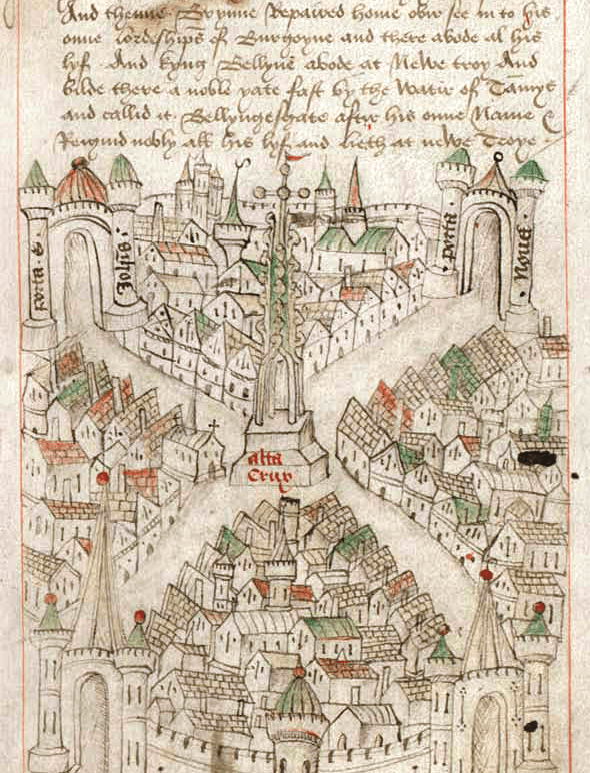 And thenne Brynne Repaired home ovir see in to his
onne lordeships of Burgoyne and there abode al his
lyf. And kyng Bellyne abode at Newe troy And
bilde there a noble yate fast by the Watir of Tamys
and callid it. Bellyngesgate aftir his onne Name
Reigned nobly all his lyf and lieth at newe Troye
porta S
Johis.
porta
Noua.
alta
Crux